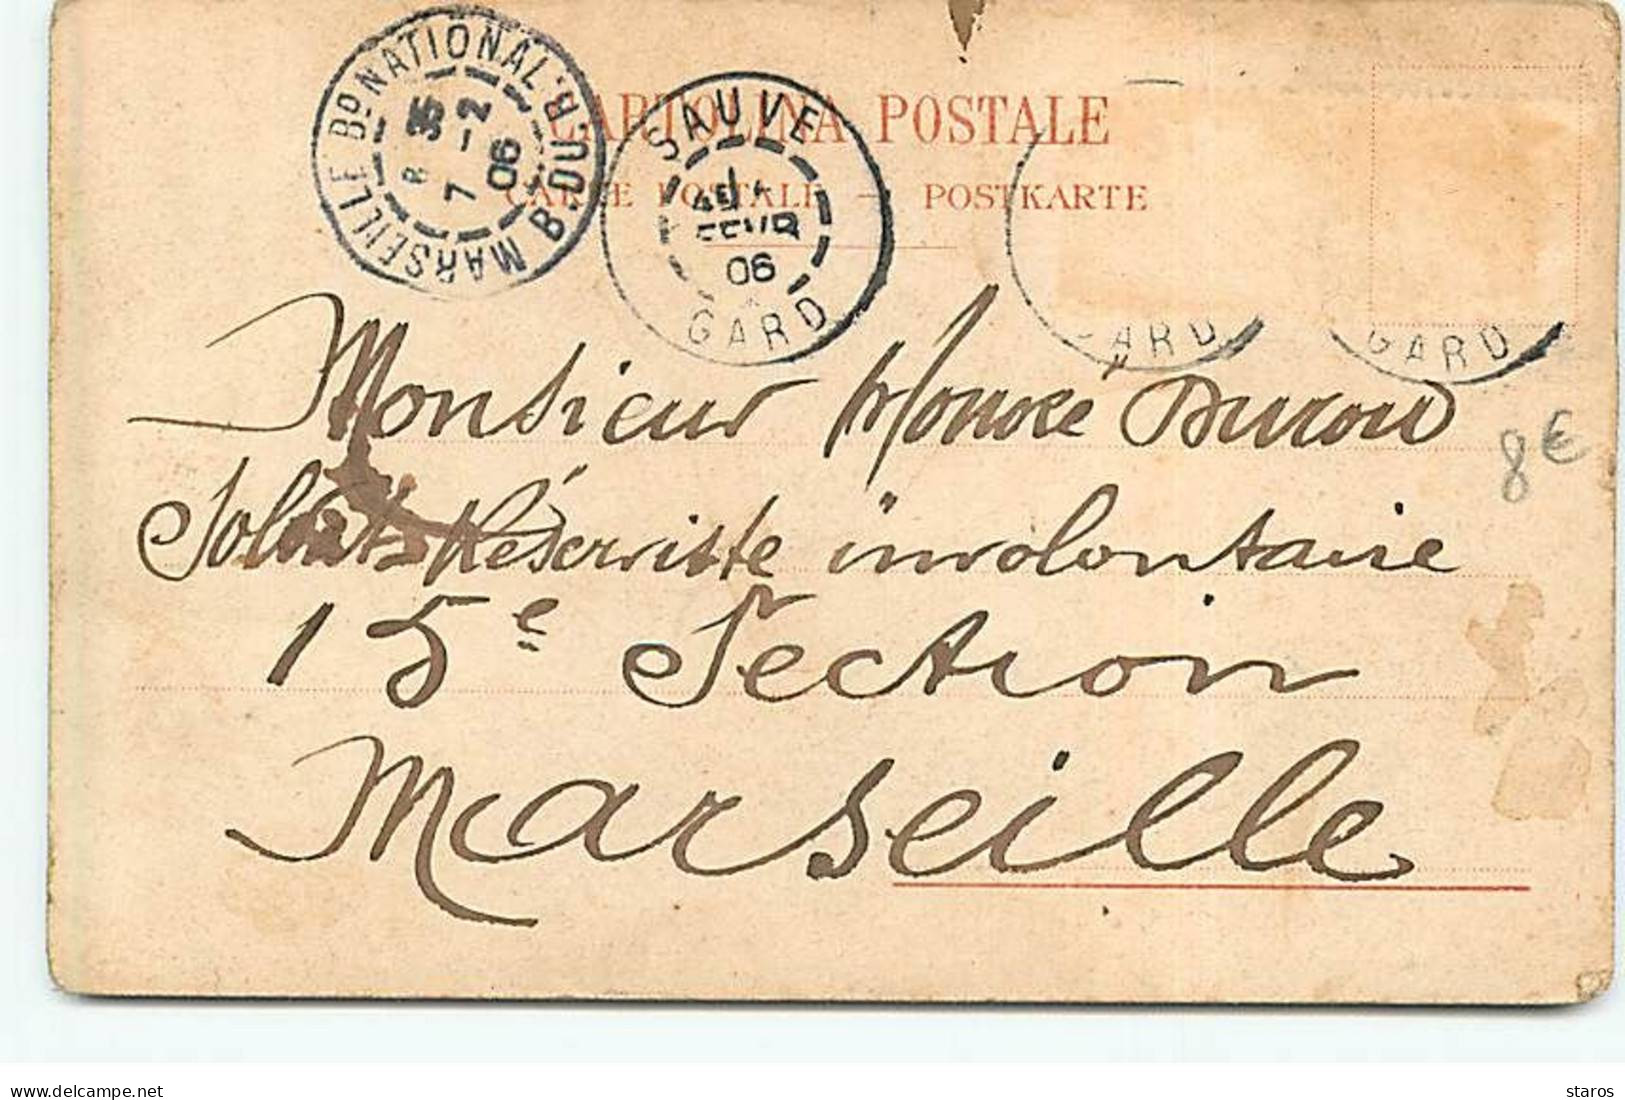 CARTOLINA POSTALE
CARTE POSTALE — POSTKARTE
MARSEILLE Bᴅ NATIONAL B. DU. B.
8 35
7 -2
06
SAUVE
FEVR
06
GARD
GARD
GARD
Monsieur Honoré
8€
Soldat Réserviste involontaire
15e Section
Marseille
delcampe.net
staros